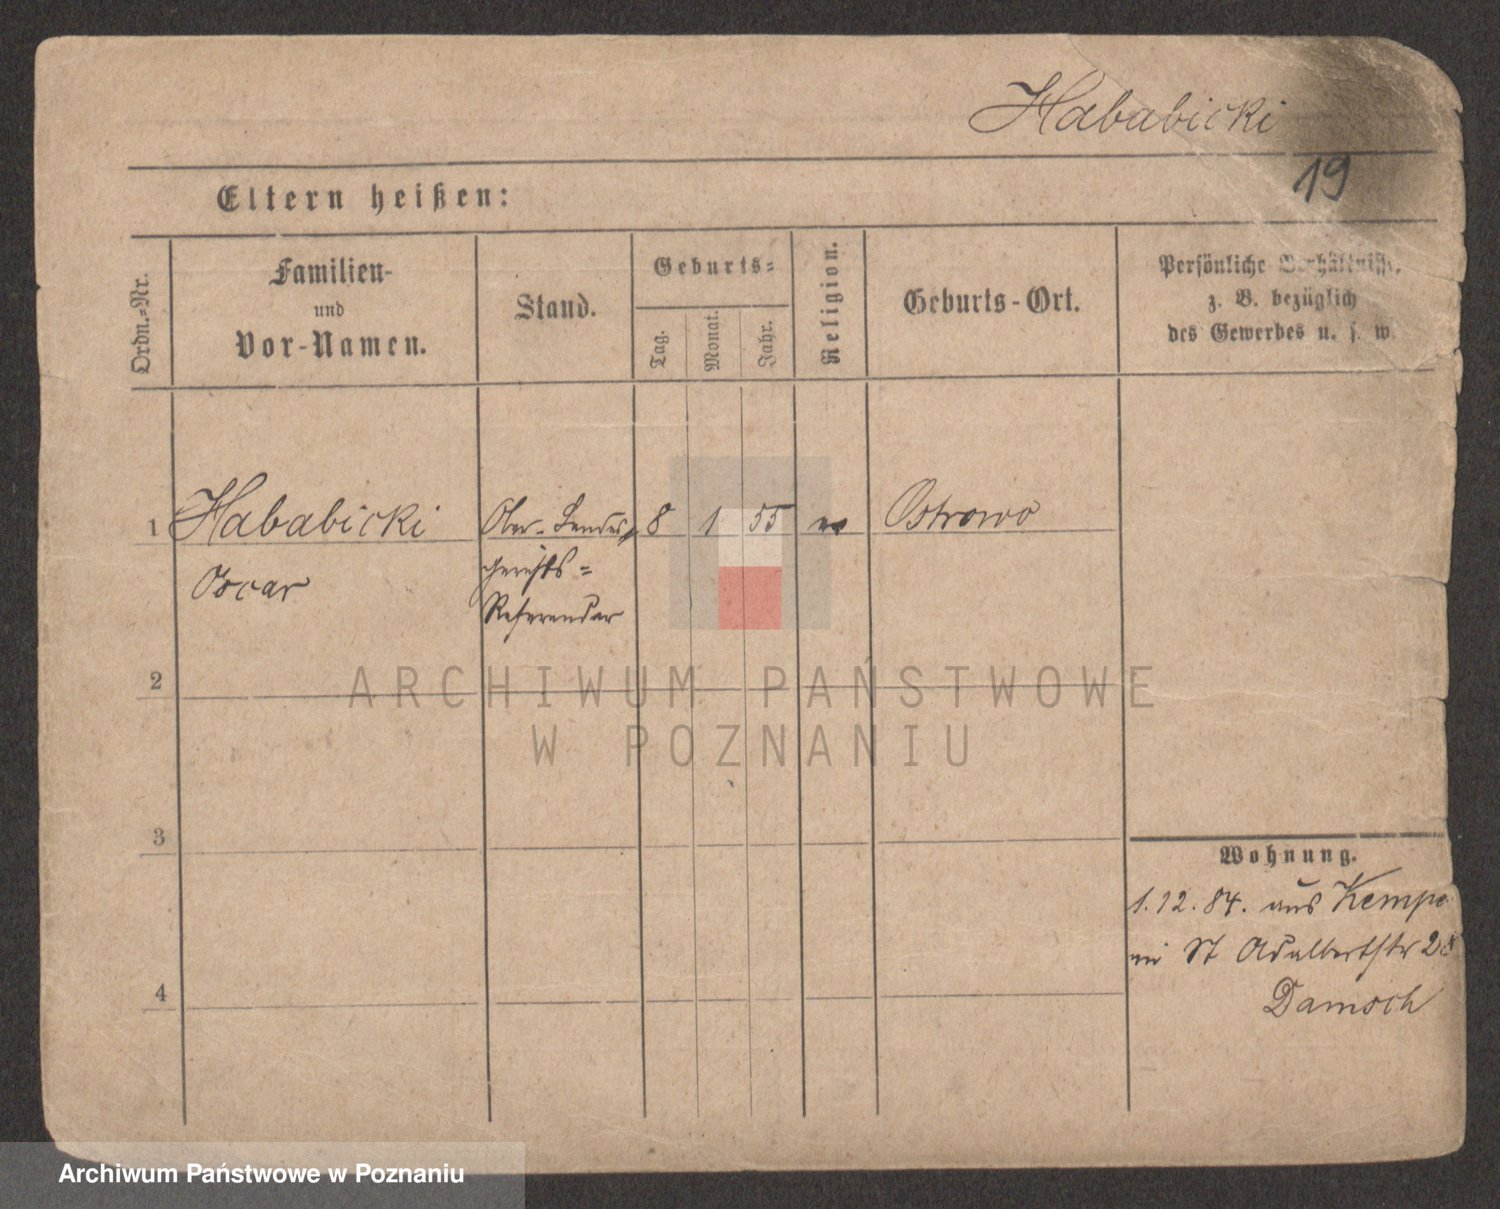 Hababicki
19
Eltern heißen:
Ordn.-Nr.
Familien-
und
Vor-Namen.
Stand.
Geburts-
Tag.
Monat.
Jahr.
Religion.
Geburts-Ort.
Persönliche Verhältnisse,
z. B. bezüglich
des Gewerbes u. s. w.
1 Hababicki Ober-Landes 8 1 55 Ostrowo
Oscar gerichts=
Referendar
2
ARCHIWUM PAŃSTWOWE
W POZNANIU
3
Wohnung.
1.12.84. aus Kempe
St Adalbertstr
4
Damsch
Archiwum Państwowe w Poznaniu